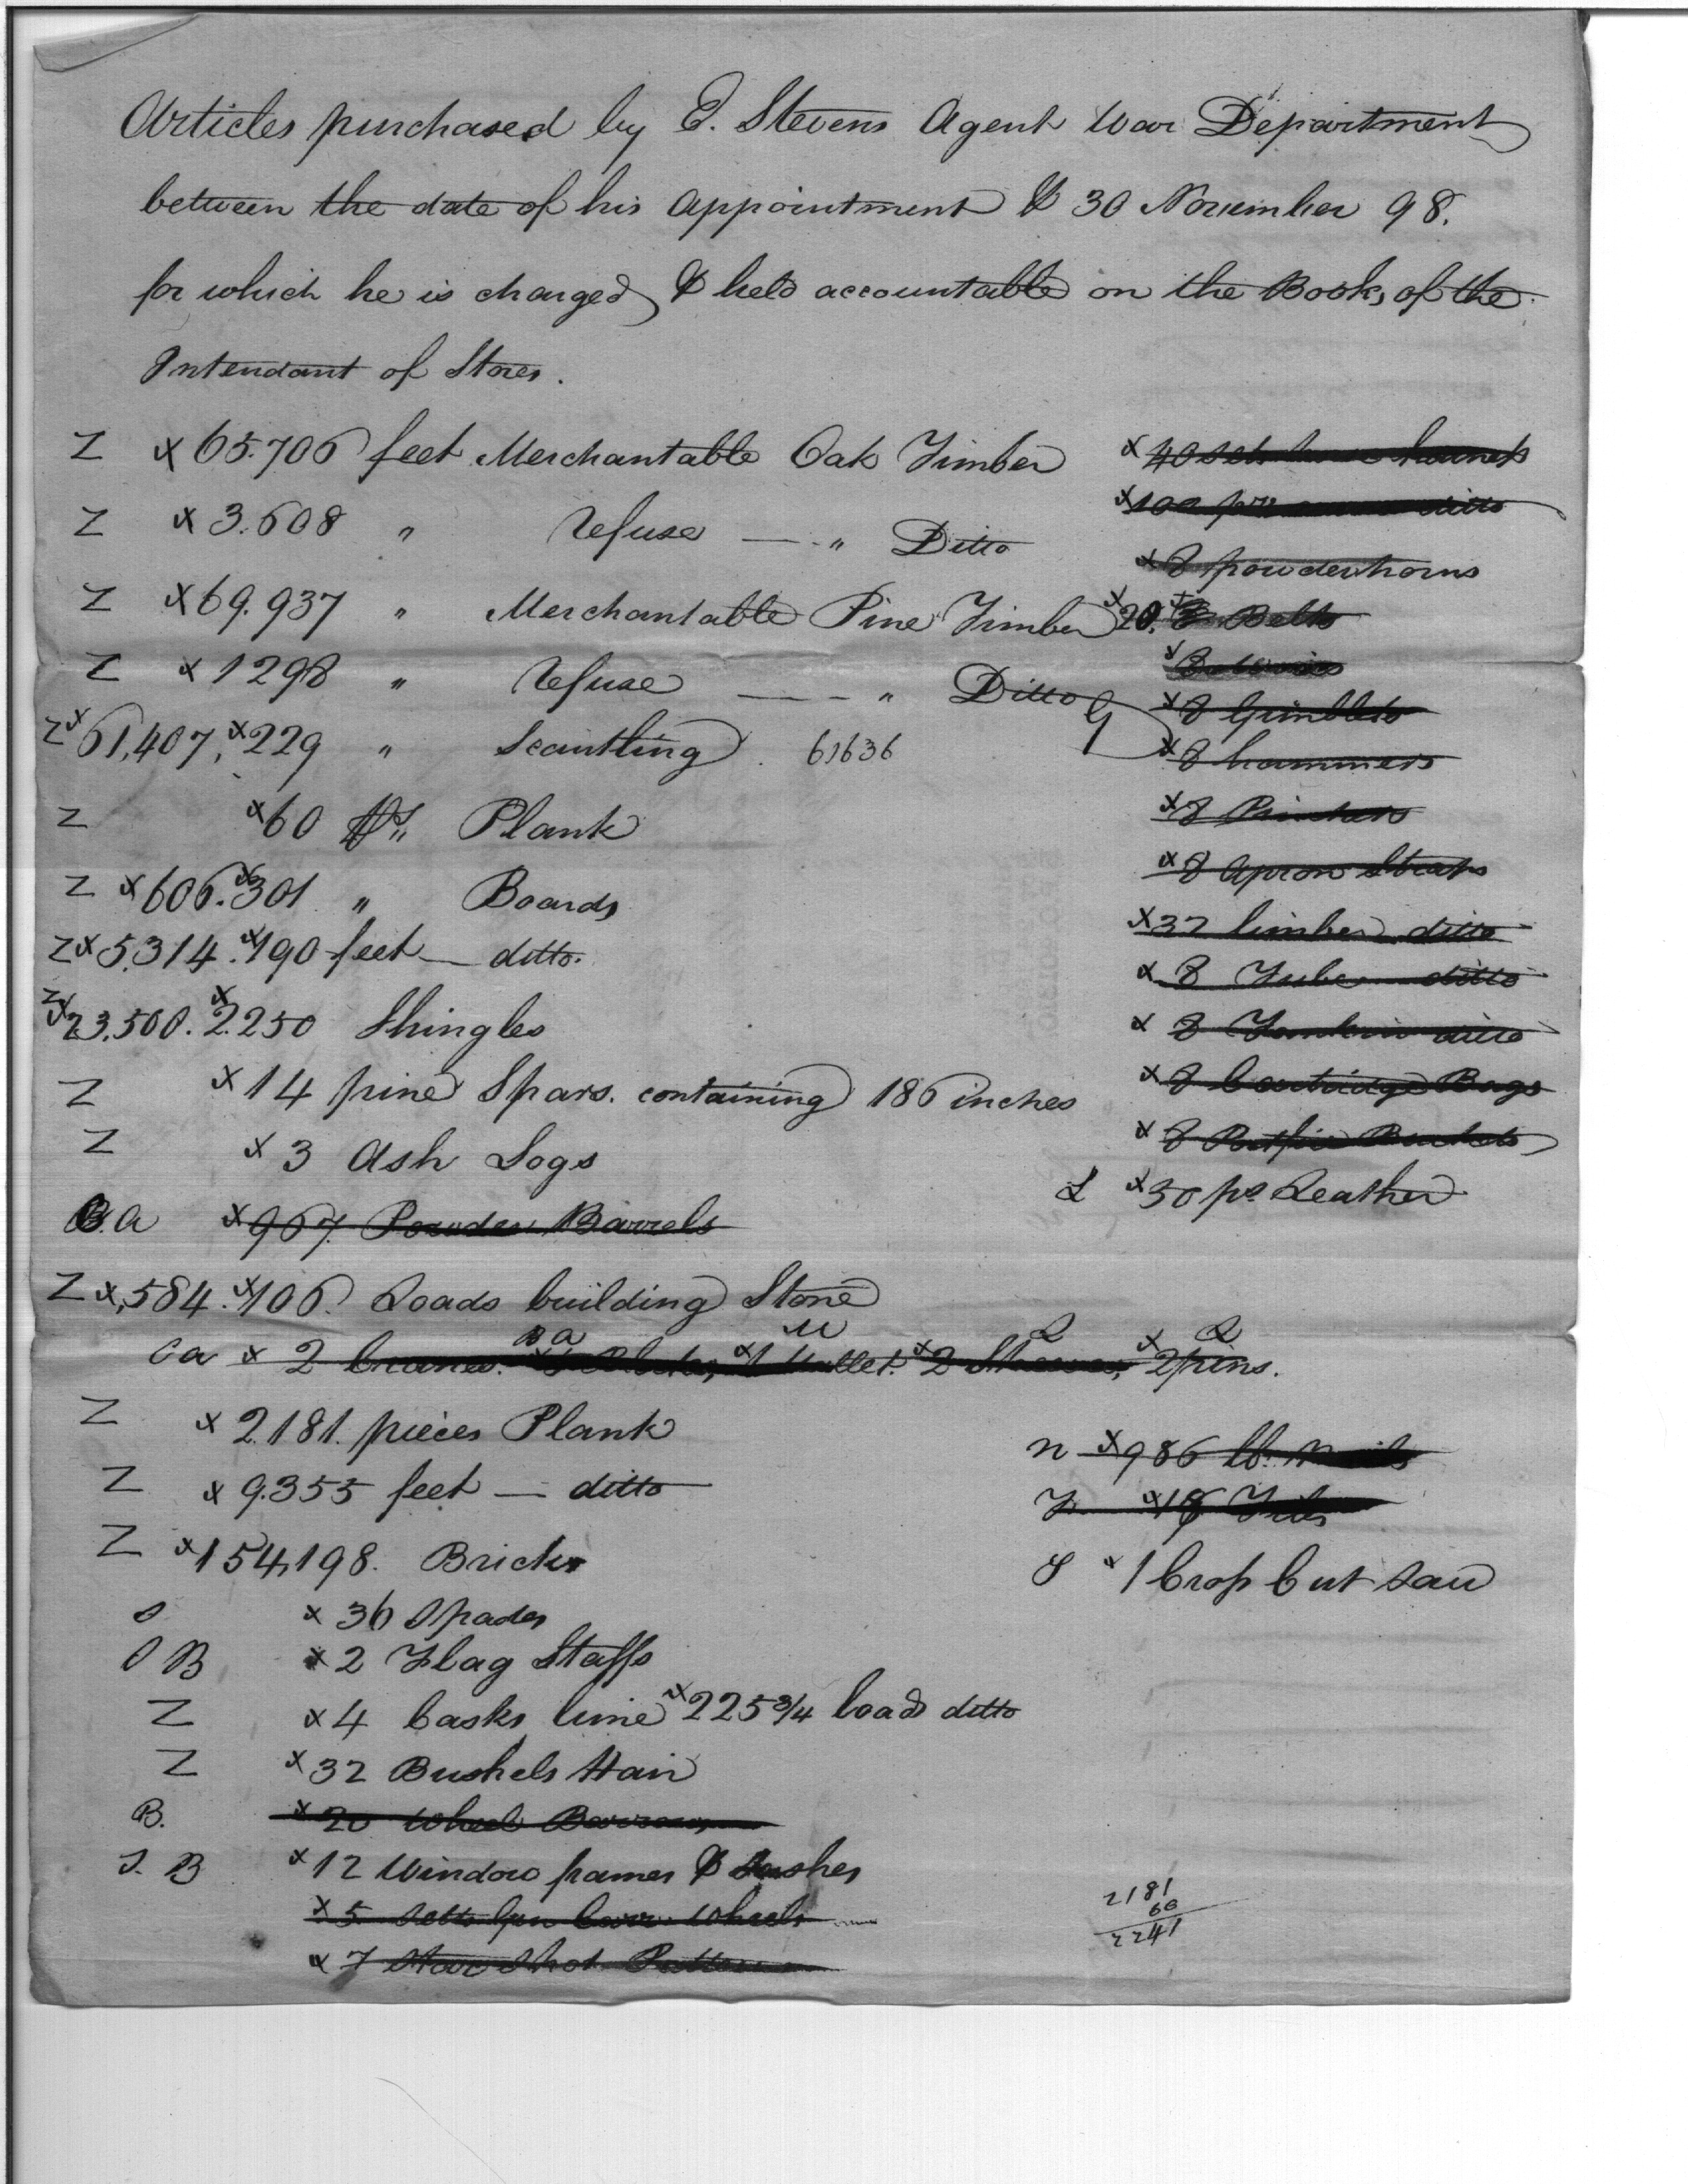 Articles purchased by E. Stevens Agent War Department
between the date of his appointment & 30 November 98.
for which he is charged & held accountable on the Books of the
Intendant of Stores.
Z x 65.706 feet Merchantable Oak Timber
Z x 3.608 " refuse — " Ditto
Z x 69.937 " Merchantable Pine Timber
Z x 1298 " refuse — — " Ditto
Z x 61,407, x 229 " Scantling 61636
Z x 60 Plank
Z x 606. x 301 " Boards
Z x 5,314. x 190 feet — ditto.
Z x 23,500. x 2.250 Shingles
Z x 14 pine Spars. containing 186 inches
Z x 3 Ash Logs
B.a x 967. Powder Barrels
Z x 584. x 106. Loads building Stone
Ca x 2 Cranes. Ba x M x 1 Mallet. x 2 x 2 pins.
Z x 2.181. pieces Plank
Z x 9.355 feet — ditto
Z x 154,198. Bricks
S x 36 Spades
S B x 2 Flag Staffs
Z x 4 Casks lime x 225 3/4 loads ditto
Z x 32 Bushels Hair
B. x 20 Wheel Barrows
S. B x 12 Window frames & Sashes
x 5 setts Gun Carr. Wheels
x 7 Shot
x 40 sets harness
x 100 ditto
x 8 powderhorns
x 20. Belts
G x 8 Gimblets
x 8 hammers
x 8 Pinchers
x 8 apron Straps
x 32 limber ditto
x 8 Tube ditto
x 8 Tomkin ditto
x 8 Cartridge Bags
x 8 Portfire Buckets
L x 50 ps. Leather
n x 986 lb. Nails
x 18
S x 1 Crop Cut Saw
2181
60
2241